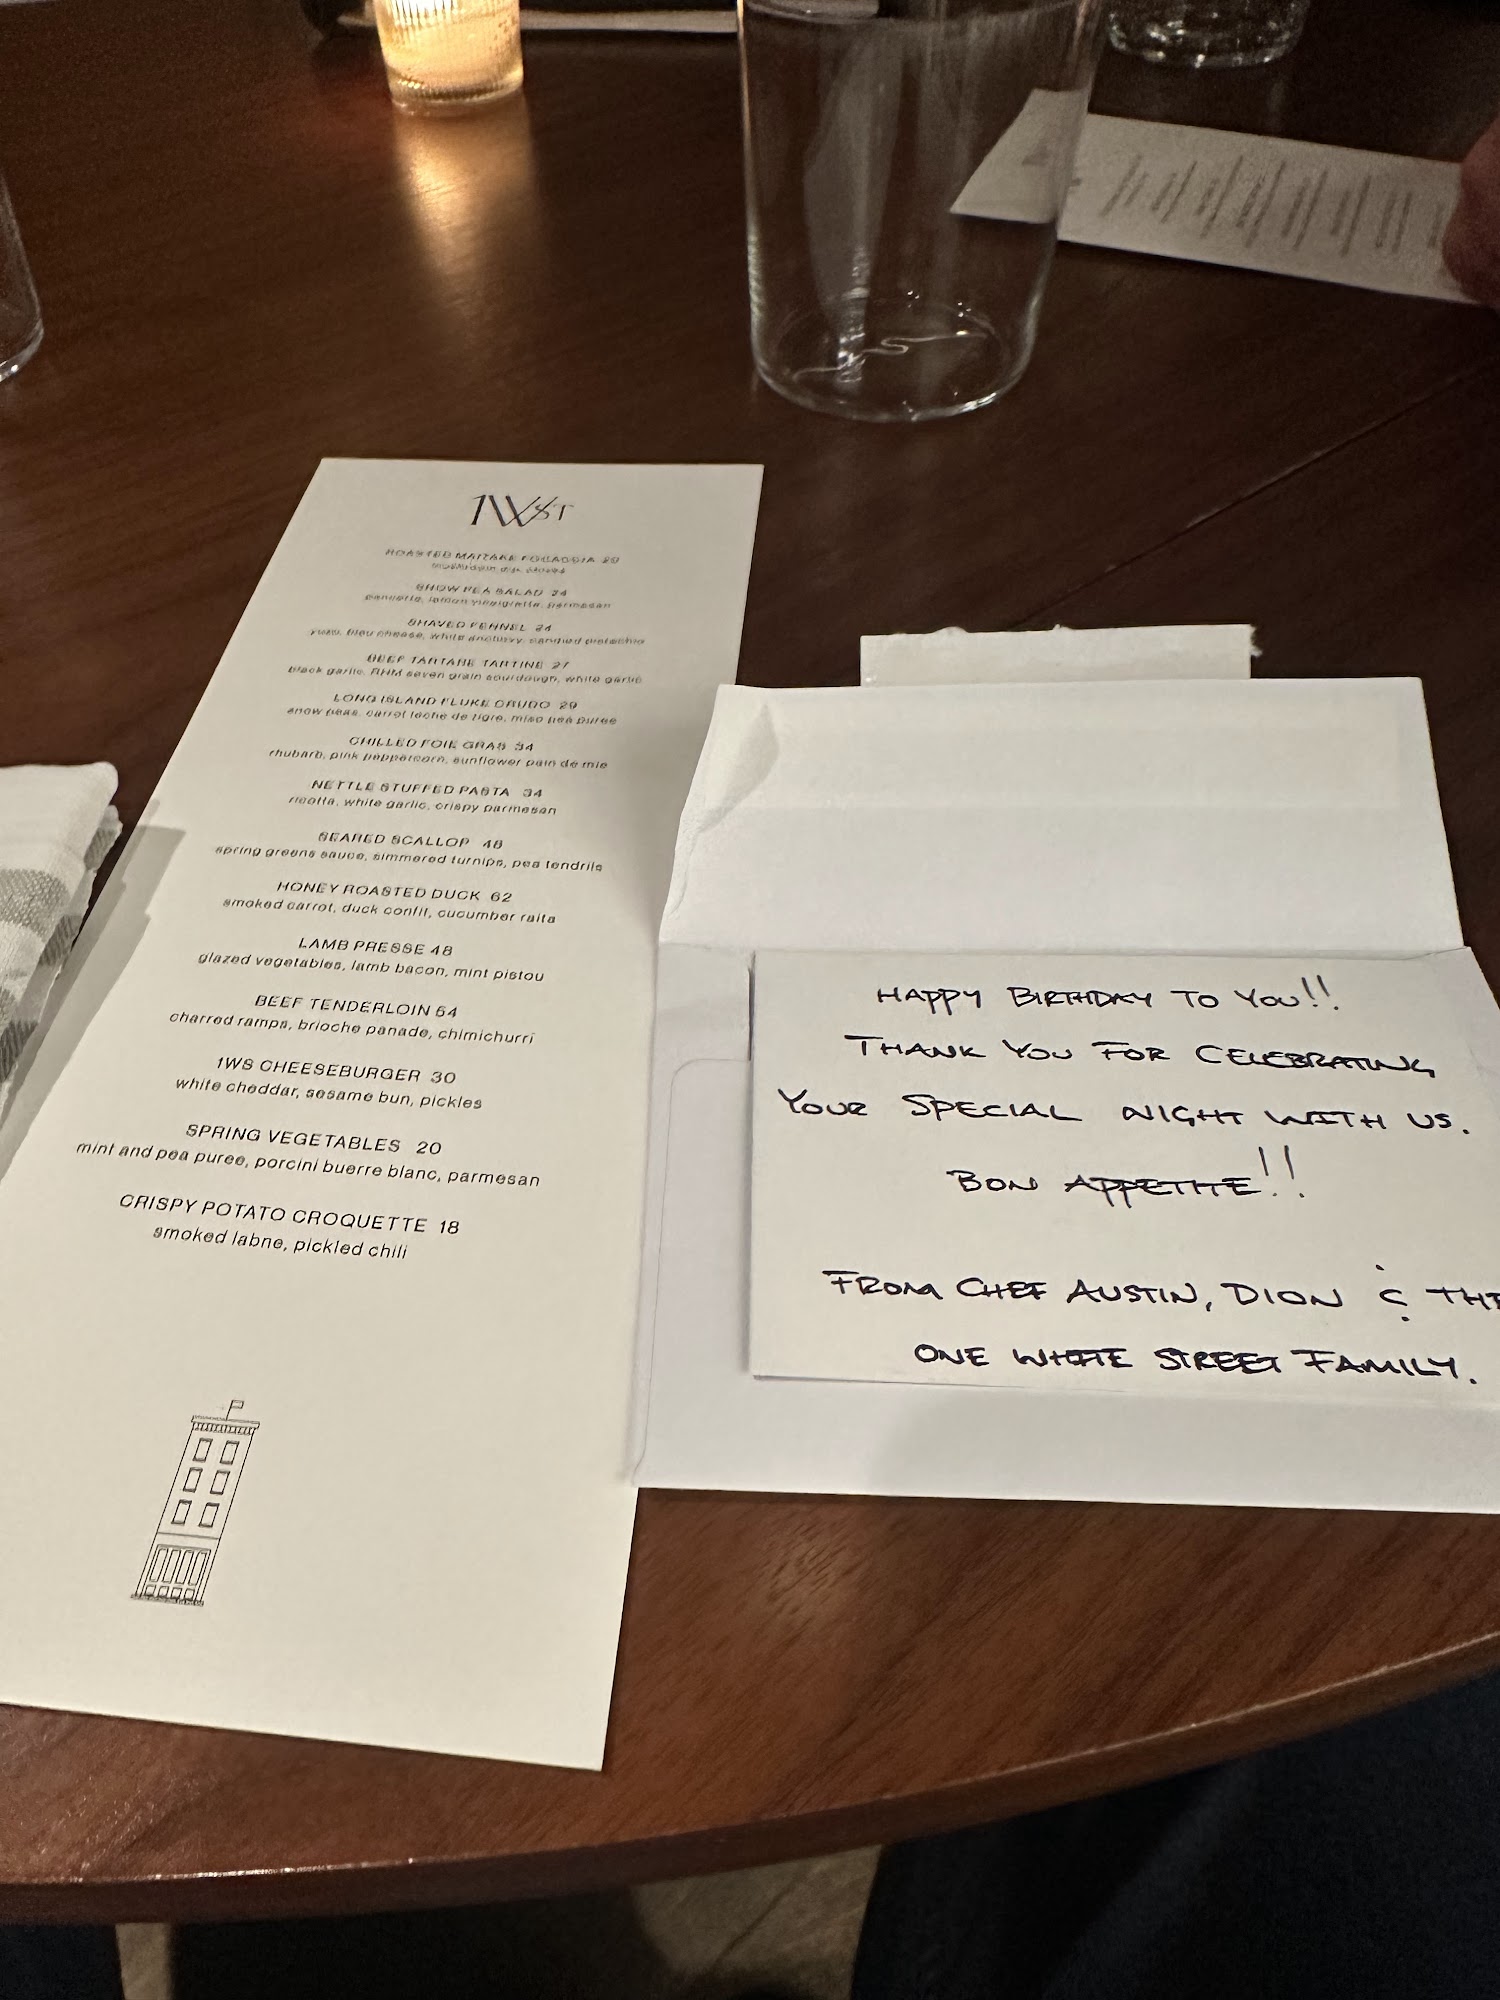 1W ST
ROASTED MAITAKE FOCACCIA 20
SNOW PEA SALAD 24
pancetta, lemon vinaigrette, parmesan
SHAVED FENNEL 24
yuzu, bleu cheese, white anchovy, candied pistachio
BEEF TARTARE TARTINE 27
black garlic, RHM seven grain sourdough, white garlic
LONG ISLAND FLUKE CRUDO 29
snow peas, carrot leche de tigre, miso pea puree
CHILLED FOIE GRAS 34
rhubarb, pink peppercorn, sunflower pain de mie
NETTLE STUFFED PASTA 34
ricotta, white garlic, crispy parmesan
SEARED SCALLOP 48
spring greens sauce, simmered turnips, pea tendrils
HONEY ROASTED DUCK 62
smoked carrot, duck confit, cucumber raita
LAMB PRESSE 48
glazed vegetables, lamb bacon, mint pistou
BEEF TENDERLOIN 54
charred ramps, brioche panade, chimichurri
1WS CHEESEBURGER 30
white cheddar, sesame bun, pickles
SPRING VEGETABLES 20
mint and pea puree, porcini buerre blanc, parmesan
CRISPY POTATO CROQUETTE 18
smoked labne, pickled chili
HAPPY BIRTHDAY TO YOU!!
THANK YOU FOR CELEBRATING
YOUR SPECIAL NIGHT WITH US.
BON APPETITE!!
FROM CHEF AUSTIN, DION & THE
ONE WHITE STREET FAMILY.